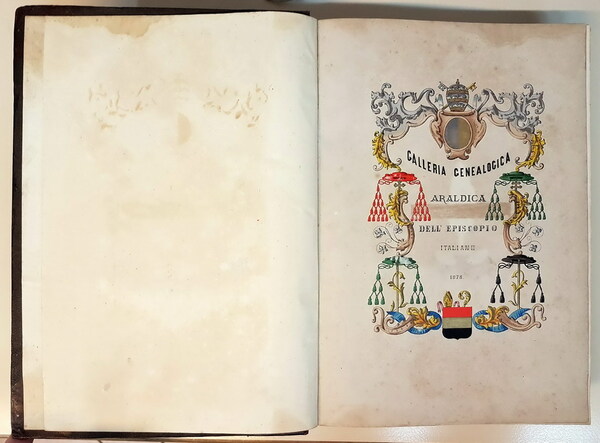 GALLERIA GENEALOGICA
ARALDICA
DELL' EPISCOPIO
ITALIANO